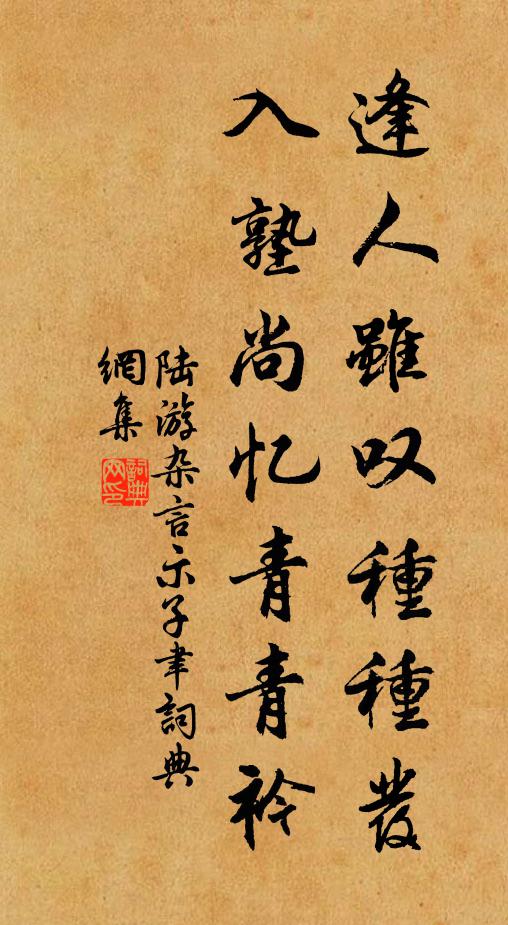 逢人雖叹種種發
入塾尚忆青青衿
陆游杂言示子聿詞典
網集
詞典网印